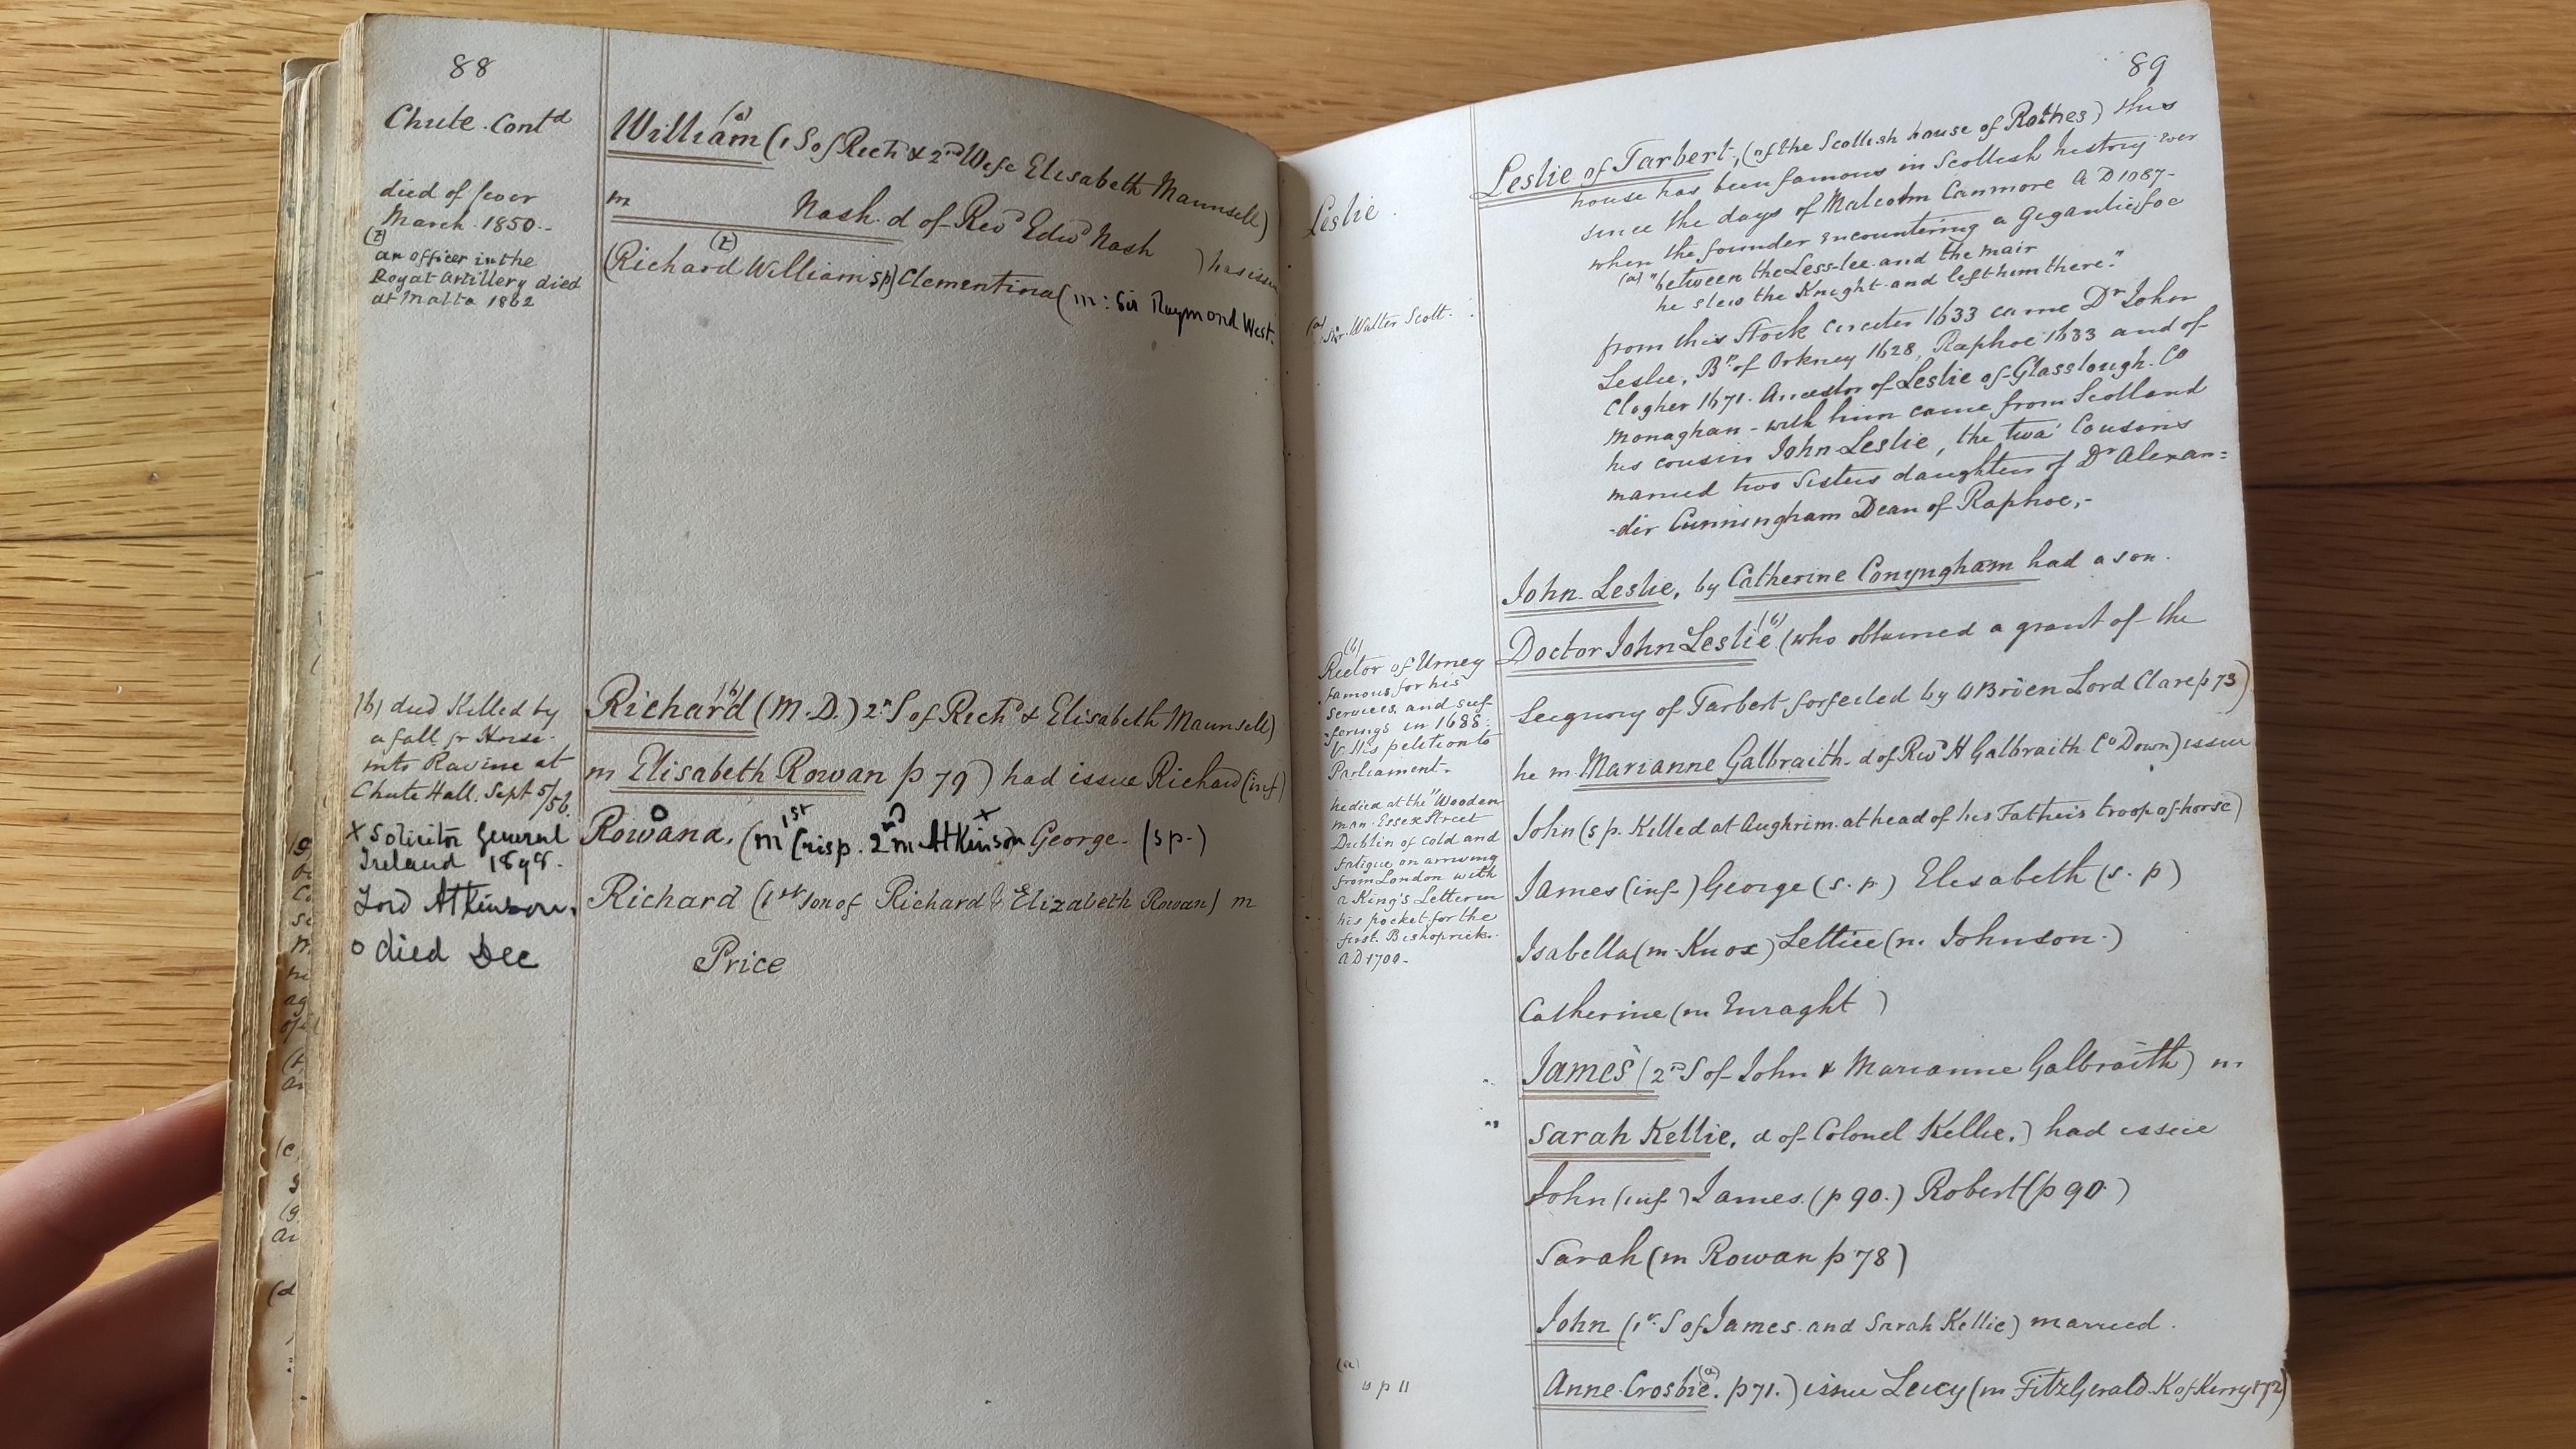 88
Chute. Contd
William (a) (1 S of Richd & 2nd Wife Elisabeth Maunsell)
died of fever
March. 1850.-
m Nash. d of Revd Edwd Nash ) has issue
(z)
an officer in the
Royal Artillery died
at Malta 1862
(Richard William (z) sp) Clementina (m: Sir Raymond West.
(b) died Killed by
a fall fr Horse.
into Ravine at
Chute Hall. Sept 5/56.
Richard (b) (M.D.) 2n S of Richd & Elisabeth Maunsell)
m Elisabeth Rowan p 79) had issue Richard (inf)
x Solicitor General
Ireland 1898.
Lord Atkinson.
o died Dec
Rowana, (m 1st Crisp. 2nd m Atkinson x George. (sp.)
Richard (1st son of Richard & Elizabeth Rowan) m
Price
89
Leslie.
Leslie of Tarbert, (of the Scottish house of Rothes) this
house has been famous in Scottish history ever
since the days of Malcolm Canmore A D 1087-
when the founder encountering a Gigantic foe
(a) "between the Less-lee and the mair
he slew the Knight and left him there."
(a) Sir. Walter Scott.
from this Stock circiter 1633 came Dr John
Leslie, Bp of Orkney 1628, Raphoe 1633 and of
Clogher 1671. Ancestor of Leslie of Glasslough. Co
Monaghan - with him came from Scotland
his cousin John Leslie, the twa' Cousins
married two Sisters daughters of Dr Alexan=
-der Cunningham Dean of Raphoe,-
John Leslie, by Catherine Conyngham had a son.
Doctor John Leslie (b) (who obtained a grant of the
Seignory of Tarbert forfeited by O Brien Lord Clare p 73)
he m. Marianne Galbraith d of Revd H Galbraith Co Down) issue
(b)
Rector of Urney
famous for his
services, and suf
-ferings in 1688.
V. His petition to
Parliament.
he died at the "Wooden
man Essex Street
Dublin of cold and
fatigue on arriving
from London with
a King's Letter in
his pocket for the
first. Bishoprick.
AD 1700-
John (s p. Killed at Aughrim. at head of his Father's troop of horse)
James (inf.) George (s. p.) Elisabeth (s. p)
Isabella (m. Knox) Lettice (m. Johnson.)
Catherine (m Enraght )
James (2nd S of John & Marianne Galbraith) m
Sarah Kellie, d of Colonel Kellie.) had issue
John (inf.) James. (p 90.) Robert (p 90.)
Sarah (m Rowan p 78)
John (1st S of James and Sarah Kellie) married.
Anne Crosbie (a). p 71.) issue Lucy (m FitzGerald K of Kerry p 72)
(a)
s p 11